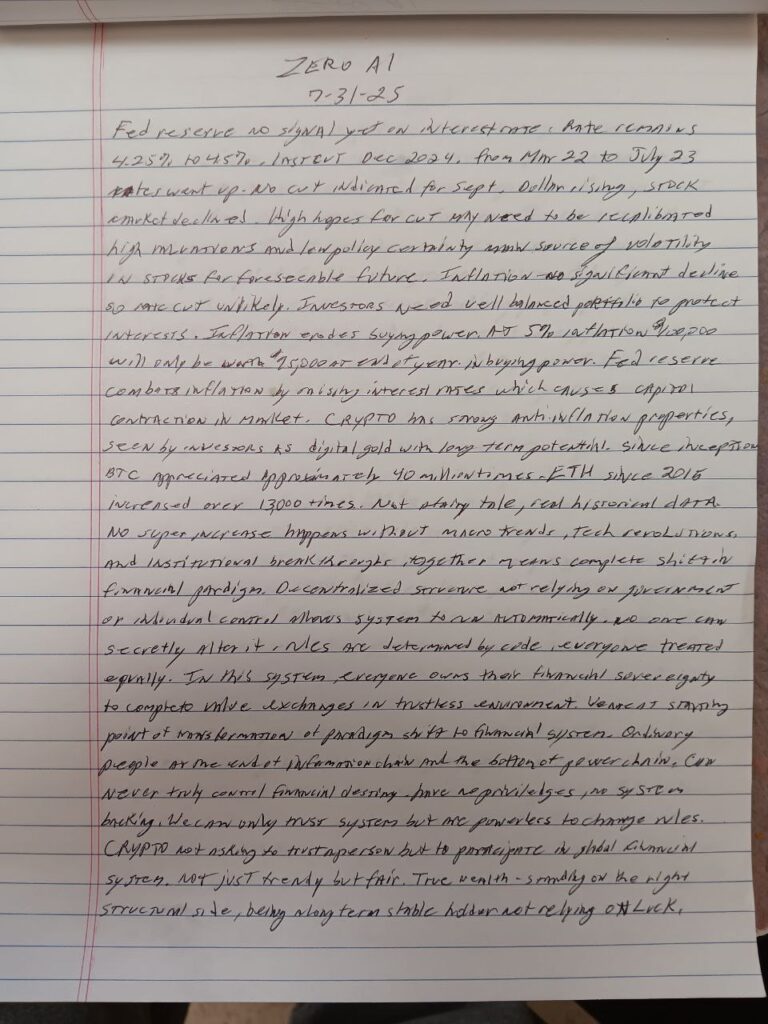 ZERO AI
7-31-25
Fed reserve no signal yet on interest rate. Rate remains
4.25% to 4.5%. Last cut Dec 2024. From Mar 22 to July 23
rates went up. No cut indicated for Sept. Dollar rising, stock
market declined. High hopes for cut may need to be recalibrated
high valuations and low policy certainty main source of volatility
in stocks for foreseeable future. Inflation - no significant decline
so rate cut unlikely. Investors need well balanced portfolio to protect
interests. Inflation erodes buying power. At 5% inflation $100,000
will only be worth $95,000 at end of year. in buying power. Fed reserve
combats inflation by raising interest rates which causes capitol
contraction in market. CRYPTO has strong anti-inflation properties,
seen by investors as digital gold with long term potential. Since inception
BTC appreciated approximately 40 million times. ETH since 2015
increased over 13,000 times. Not a fairy tale, real historical data.
No super increase happens without macro trends, tech revolutions,
and institutional breakthroughs, together means complete shift in
financial paradigm. Decentralized structure not relying on government
or individual control allows system to run automatically. No one can
secretly alter it. rules are determined by code, everyone treated
equally. In this system, everyone owns their financial sovereignty
to complete value exchanges in trustless environment. We are at starting
point of transformation of paradigm shift to financial system. Ordinary
people at the end of information chain and the bottom of power chain. Can
never truly control financial destiny. have no priviledges, no system
backing. We can only trust system but are powerless to change rules.
CRYPTO not asking to trust a person but to participate in global financial
system. Not just trendy but fair. True wealth - standing on the right
structural side, being a long term stable holder not relying on Luck.